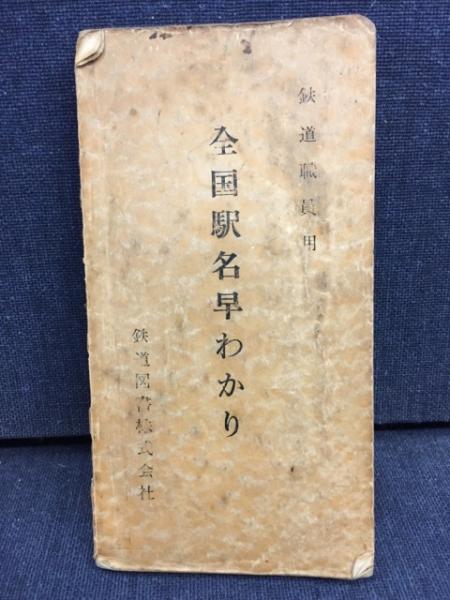 鉄道職員用
全国駅名早わかり
鉄道図書株式会社